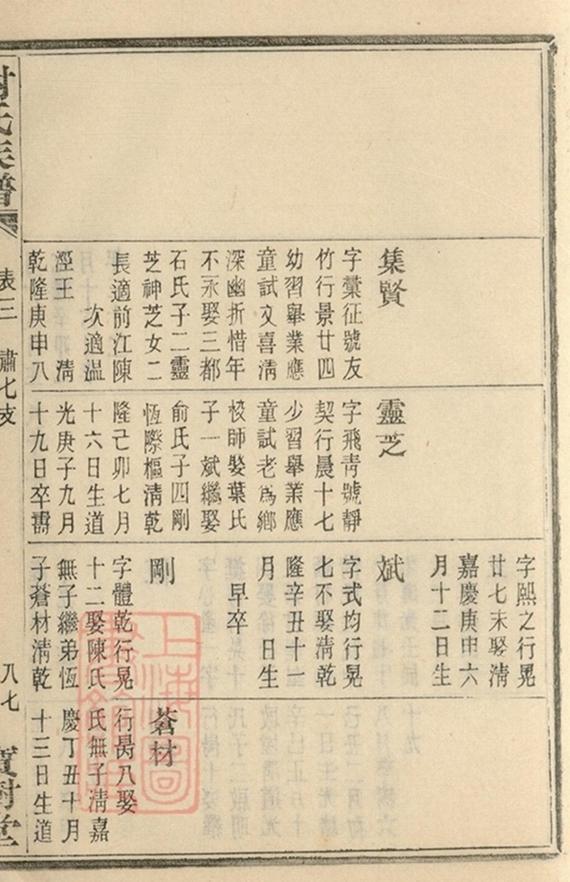 集賢
字彙征號友
竹行景廿四
幼習舉業應
童試文喜清
深幽折惜年
不永娶三都
石氏子二靈
芝神芝女二
長適前江陳
次適温
涇王 清
乾隆庚申八
靈芝
字飛青號靜
契行晨十七
少習舉業應
童試老爲鄉
校師娶葉氏
子一斌繼娶
俞氏子四剛
恆際樞清乾
隆己卯七月
十六日生道
光庚子九月
十九日卒壽
字熙之行晃
廿七未娶清
嘉慶庚申六
月十二日生
斌
字式均行晃
七不娶清乾
隆辛丑十一
月 日生
早卒
剛
字體乾行晃
十二娶陳氏
無子繼弟恆
子蒼材清乾
蒼材
行勗八娶
氏無子清嘉
慶丁丑十月
十三日生道
氏族譜
表三 肅七支
八七
樹堂